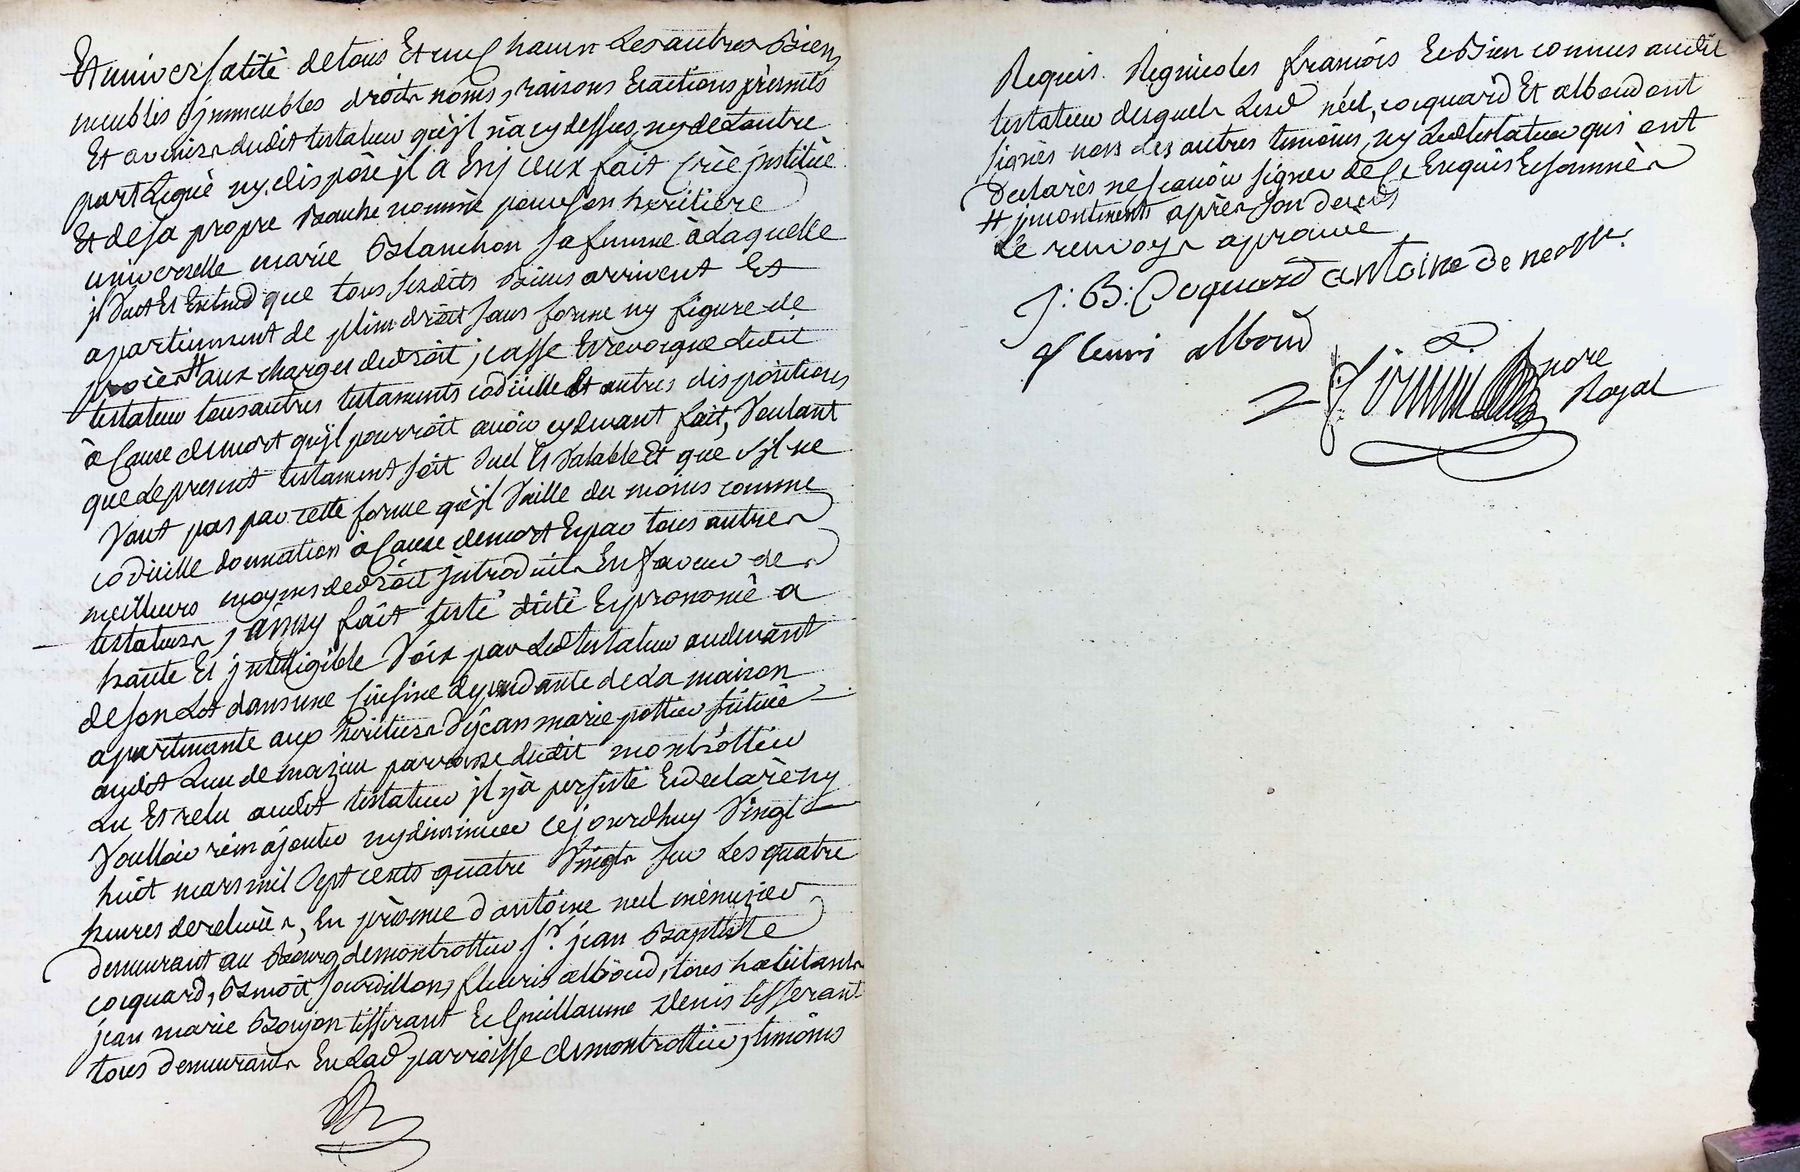 Et universalité de tous Et un Chacun Les autres Biens
meublés jmmeubles droits noms, raisons Et actions présents
Et avenirs dudit testateur qu'jl n'a cy dessus, ny de L'autre
part Legué ny disposé jl a En jceux fait créé jnstitué
Et de sa propre Bouche nommé pour son héritiere
universelle marie Blanchon sa femme à Laquelle
jl Veut Et Entend que tous sesdits Biens arrivent Et
apartiennent de plein droit sans forme ny figure de
procès # aux charges de droit, casse Et révoque Ledit
testateur tous autres testaments codicille Et autres dispositions
à Cause de mort qu'jl pourroit avoir cy devant fait, Voulant
que Le present testament soit seul Et Valable Et que s'jl ne
Vaut pas par cette forme qu'jl Vaille du moins comme
codicille donnation à Cause de mort Et par tous autres
meilleurs moyens de droit jntroduits En faveur de
testateurs, j ainsy fait testé dicté Et prononcé a
haute Et jntelligible Voix par Led testateur au devant
de son Lit dans une Cuisine dependante de La maison
apartenante aux héritiers de jean marie pottier située
audit Lieu de mazieu parroisse dudit montrottier
Lu Et relu audit testateur jl y à persisté Et declaré ny
Voulloir rien ajouter ny diminuer Cejourdhuy Vingt
huit mars mil Sept cents quatre Vingts sur Les quatre
heures de relevée, En présence d'antoine neel menuzier
demeurant au Bourg de montrottier Sr jean Baptiste
cocquard, Benoit Jourdillon, fleuris alboud, tous habitants
jean marie Boujon tisserant Et Guillaume Denis tisserant
tous demeurants En Lad parroisse de montrottier, témoins
Requis Regnicoles français Et Bien connus audit
testateur desquels Lesd néel, cocquard Et alboud ont
signés non Les autres témoins, ny Led testateur qui ont
Declarés ne sçavoir signer de Ce Enquis Et sommés
# jncontinents après son decès
Le renvoy aprouvé
J: B: Coquard antoine de neelle
fleuri alboud
nore
Royal